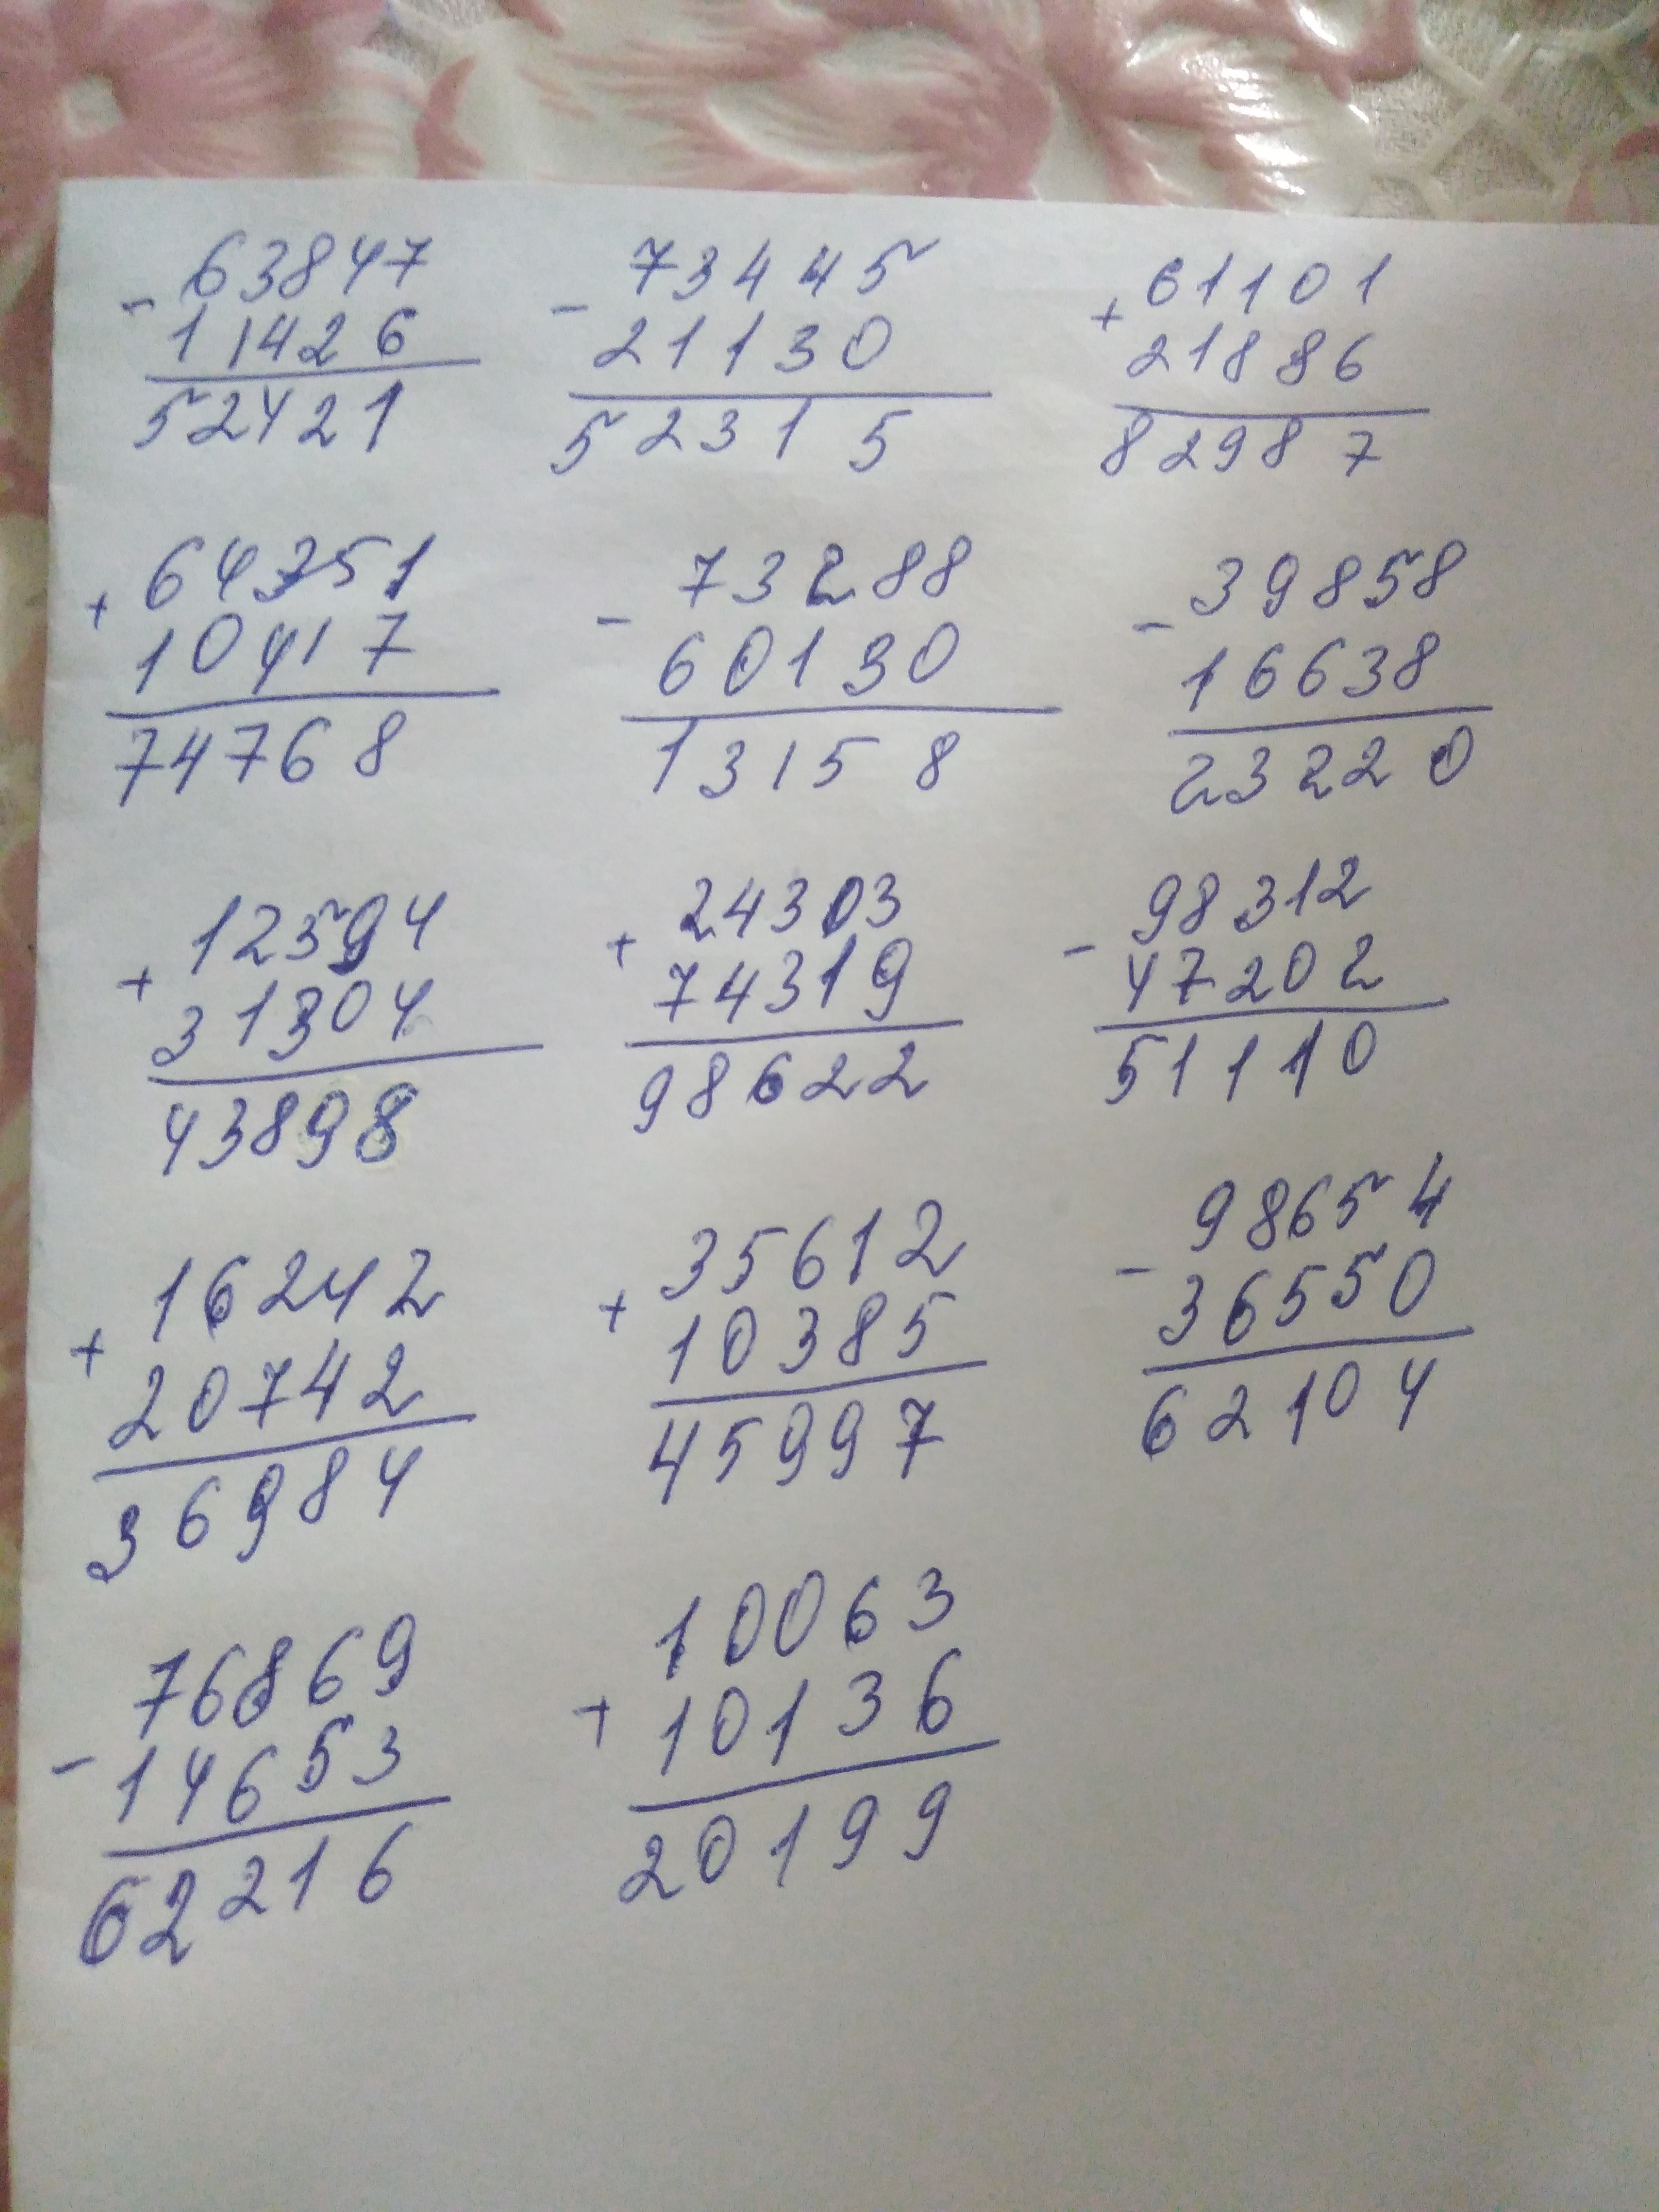 - 63847
11426
52421
- 73445
21130
52315
+ 61101
21886
82987
+ 64351
10417
74768
- 73288
60130
13158
- 39858
16638
23220
+ 12594
31304
43898
+ 24303
74319
98622
- 98312
47202
51110
+ 16242
20742
36984
+ 35612
10385
45997
- 98654
36550
62104
- 76869
14653
62216
+ 10063
10136
20199